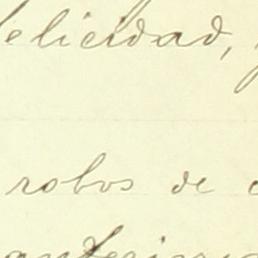 felicidad,
robos de